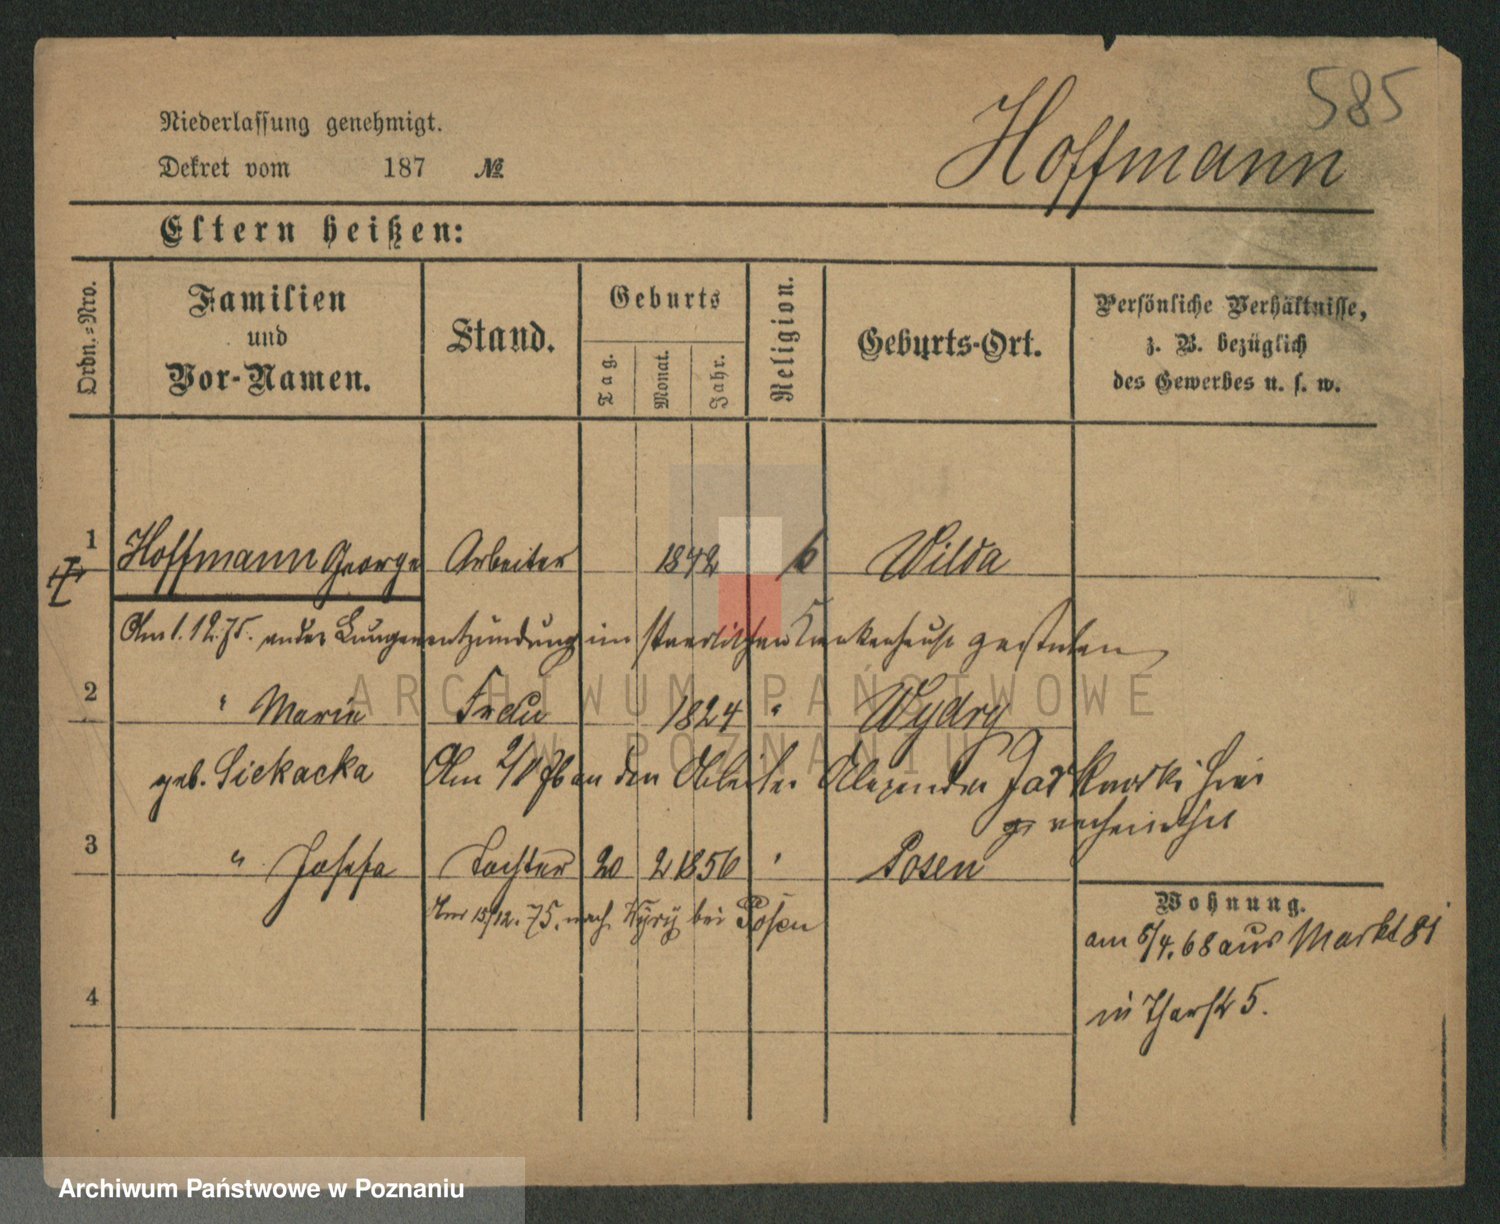 585
Hoffmann
Niederlassung genehmigt.
Dekret vom 187 №
Eltern heißen:
Ordn.=Nro.
Familien
und
Vor-Namen.
Stand.
Geburts
Tag.
Monat.
Jahr.
Religion.
Geburts-Ort.
Persönliche Verhältnisse,
z. B. bezüglich
des Gewerbes u. s. w.
1 Hoffmann George Arbeiter 1842 k Wilda
Am 1.12.75. an der Lungenentzündung im städtischen Krankenhause gestorben
2 " Marie Frau 1824 " Wydry
geb. Siekacka Am 2/1 76 an den Arbeiter Alexander hier
verheirathet
3 " Josefa Tochter 20 2 1856 " Posen
Am 15/12. 75. nach bei Posen
Wohnung.
am 5/4. 68 aus Markt 81
in 5.
4
ARCHIWUM PAŃSTWOWE
W POZNANIU
Archiwum Państwowe w Poznaniu